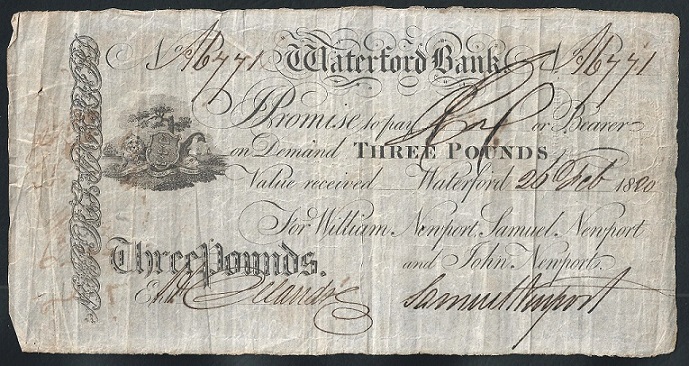 No A6771 Waterford Bank. No A6771
I Promise to pay or Bearer
on Demand THREE POUNDS
Value received Waterford 26 Feb 1820
For William Newport, Samuel Newport
and John Newport.
Three Pounds.
Entd Samuel Newport